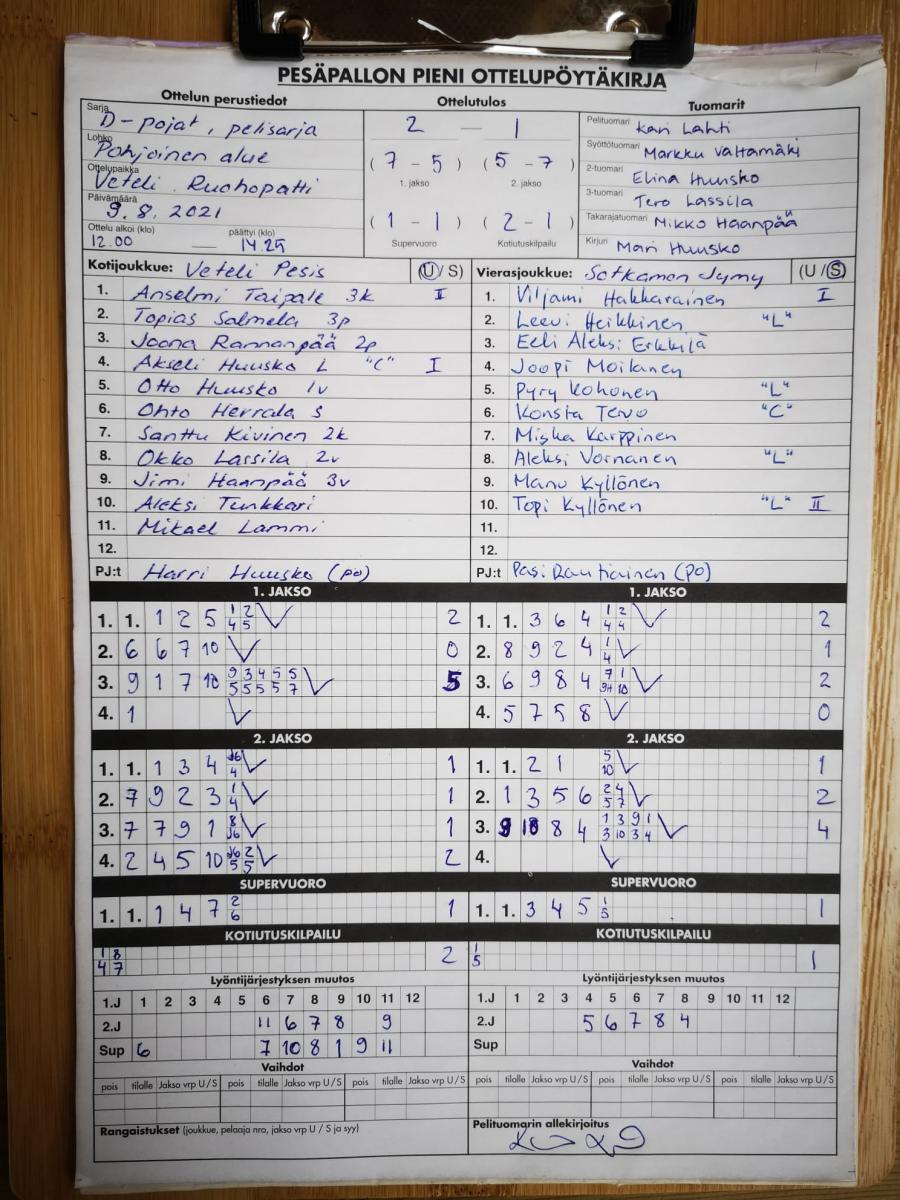 PESÄPALLON PIENI OTTELUPÖYTÄKIRJA
Ottelun perustiedot Ottelutulos Tuomarit
Sarja D-pojat, pelisarja
Lohko Pohjoinen alue
Ottelupaikka Veteli Ruohopatti
Päivämäärä 9.8.2021
Ottelu alkoi (klo) päättyi (klo)
12.00 — 14.29
2 — 1
(7 - 5) (5 - 7)
1. jakso 2. jakso
(1 - 1) (2 - 1)
Supervuoro Kotiutuskilpailu
Pelituomari Kari Lahti
Syöttötuomari Markku Valtamäki
2-tuomari Elina Huusko
3-tuomari Tero Lassila
Takarajatuomari Mikko Haanpää
Kirjuri Mari Huusko
Kotijoukkue: Veteli Pesis (U/S)
1. Anselmi Taipale 3k I
2. Topias Salmela 3p
3. Joona Rannanpää 2p
4. Akseli Huusko L "C" I
5. Otto Huusko 1v
6. Ohto Herrala S
7. Santtu Kivinen 2k
8. Okko Lassila 2v
9. Jimi Haanpää 3v
10. Aleksi Tunkkari
11. Mikael Lammi
12.
PJ:t Harri Huusko (po)
Vierasjoukkue: Sotkamon Jymy (U/S)
1. Viljami Hakkarainen I
2. Leevi Heikkinen "L"
3. Eeli Aleksi Erkkilä
4. Joopi Moilanen
5. Pyry Kohonen "L"
6. Konsta Tervo "C"
7. Miska Karppinen
8. Aleksi Vornanen "L"
9. Manu Kyllönen
10. Topi Kyllönen "L" II
11.
12.
PJ:t Pasi Rautiainen (po)
1. JAKSO
1. 1. 1 2 5 1 2 2
4 5
2. 6 6 7 10 0
3. 9 1 7 10 9 3 4 5 5 5
5 5 5 5 7
4. 1
1. JAKSO
1. 1. 3 6 4 1 2 2
4 4
2. 8 9 2 4 1 1
4
3. 6 9 8 4 7 1 2
10
4. 5 7 5 8 0
2. JAKSO
1. 1. 1 3 4 J6 1
4
2. 7 9 2 3 1 1
4
3. 7 7 9 1 8 1
J6
4. 2 4 5 10 J6 2 2
5 5
2. JAKSO
1. 1. 2 1 5 1
10
2. 1 3 5 6 2 4 2
5 7
3. 9 10 8 4 1 3 9 1 4
3 10 3 4
4.
SUPERVUORO
1. 1. 1 4 7 2 1
6
SUPERVUORO
1. 1. 3 4 5 1 1
5
KOTIUTUSKILPAILU
1 8 2
4 7
KOTIUTUSKILPAILU
1 1
5
Lyöntijärjestyksen muutos
1.J 1 2 3 4 5 6 7 8 9 10 11 12
2.J 11 6 7 8 9
Sup 6 7 10 8 1 9 11
Lyöntijärjestyksen muutos
1.J 1 2 3 4 5 6 7 8 9 10 11 12
2.J 5 6 7 8 4
Sup
Vaihdot
pois tilalle Jakso vrp U/S pois tilalle Jakso vrp U/S pois tilalle Jakso vrp U/S
Vaihdot
pois tilalle Jakso vrp U/S pois tilalle Jakso vrp U/S pois tilalle Jakso vrp U/S
Rangaistukset (joukkue, pelaaja nro, jakso vrp U/S ja syy)
Pelituomarin allekirjoitus